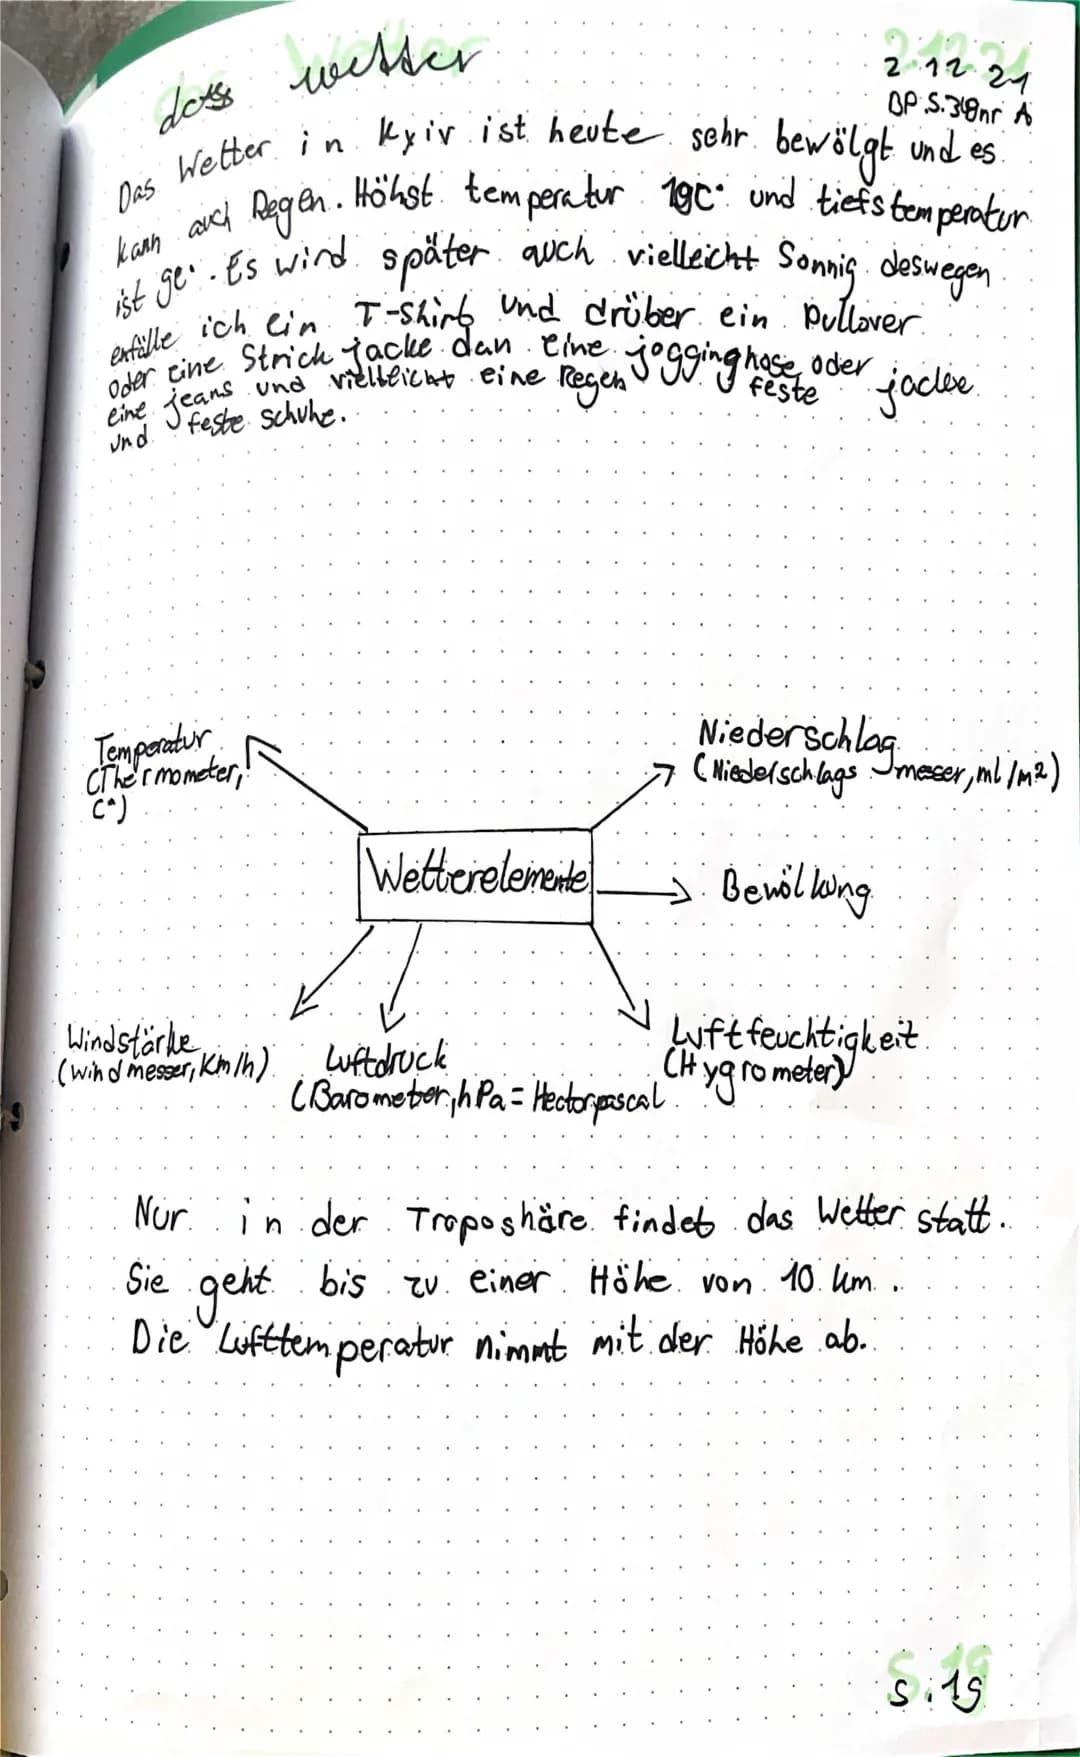 das Wetter
2.12.21
BP S. nr A
Das Wetter in Kyiv ist heute sehr bewölgt und es
kann auch Regen. Höhst temperatur 19C° und tiefstemperatur
ist 9c°. Es wird später auch vielleicht Sonnig. deswegen
ich ein T-Shirt und drüber ein Pullover
oder eine Strick jacke dan eine jogginghose oder
eine jeans und vielleicht eine Regen feste jacke
und feste schuhe.
Temperatur
(Thermometer,
C°)
Niederschlag
(Niederschlags messer, ml/m²)
Wetterelemente
Bewölkung
Windstärke
(windmesser, Km/h)
Luftdruck
(Barometer, hPa = Hectorpascal
Luftfeuchtigkeit
(Hygrometer)
Nur in der Troposhäre findet das Wetter statt.
Sie geht bis zu einer Höhe von 10 km.
Die Lufttemperatur nimmt mit der Höhe ab.
S.19